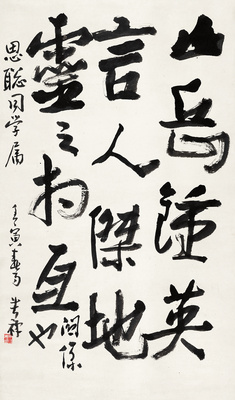 山岳鍾英
言人傑地
靈之相互也
關係
思聪同学属
壬寅春月